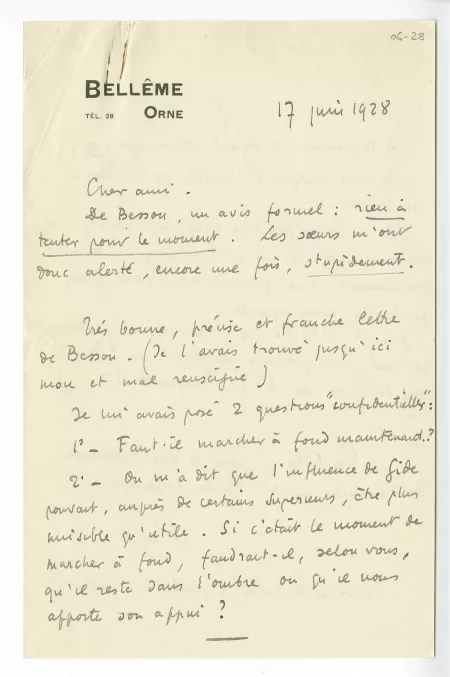 06-28
BELLÊME
TÉL. 28 ORNE
17 juin 1928
Cher ami.
De Besson, un avis formel : rien à
tenter pour le moment. Les sœurs m'ont
donc alerté, encore une fois, stupidement.
Très bonne, précise et franche lettre
de Besson. (Je l'avais trouvé jusqu'ici
mou et mal renseigné)
Je lui avais posé 2 questions "confidentielles" :
1° – Faut-il marcher à fond maintenant ?
2° – On m'a dit que l'influence de Gide
pouvait, auprès de certains supérieurs, être plus
nuisible qu'utile. Si c'était le moment de
marcher à fond, faudrait-il, selon vous,
qu'il reste dans l'ombre ou qu'il nous
apporte son appui ?